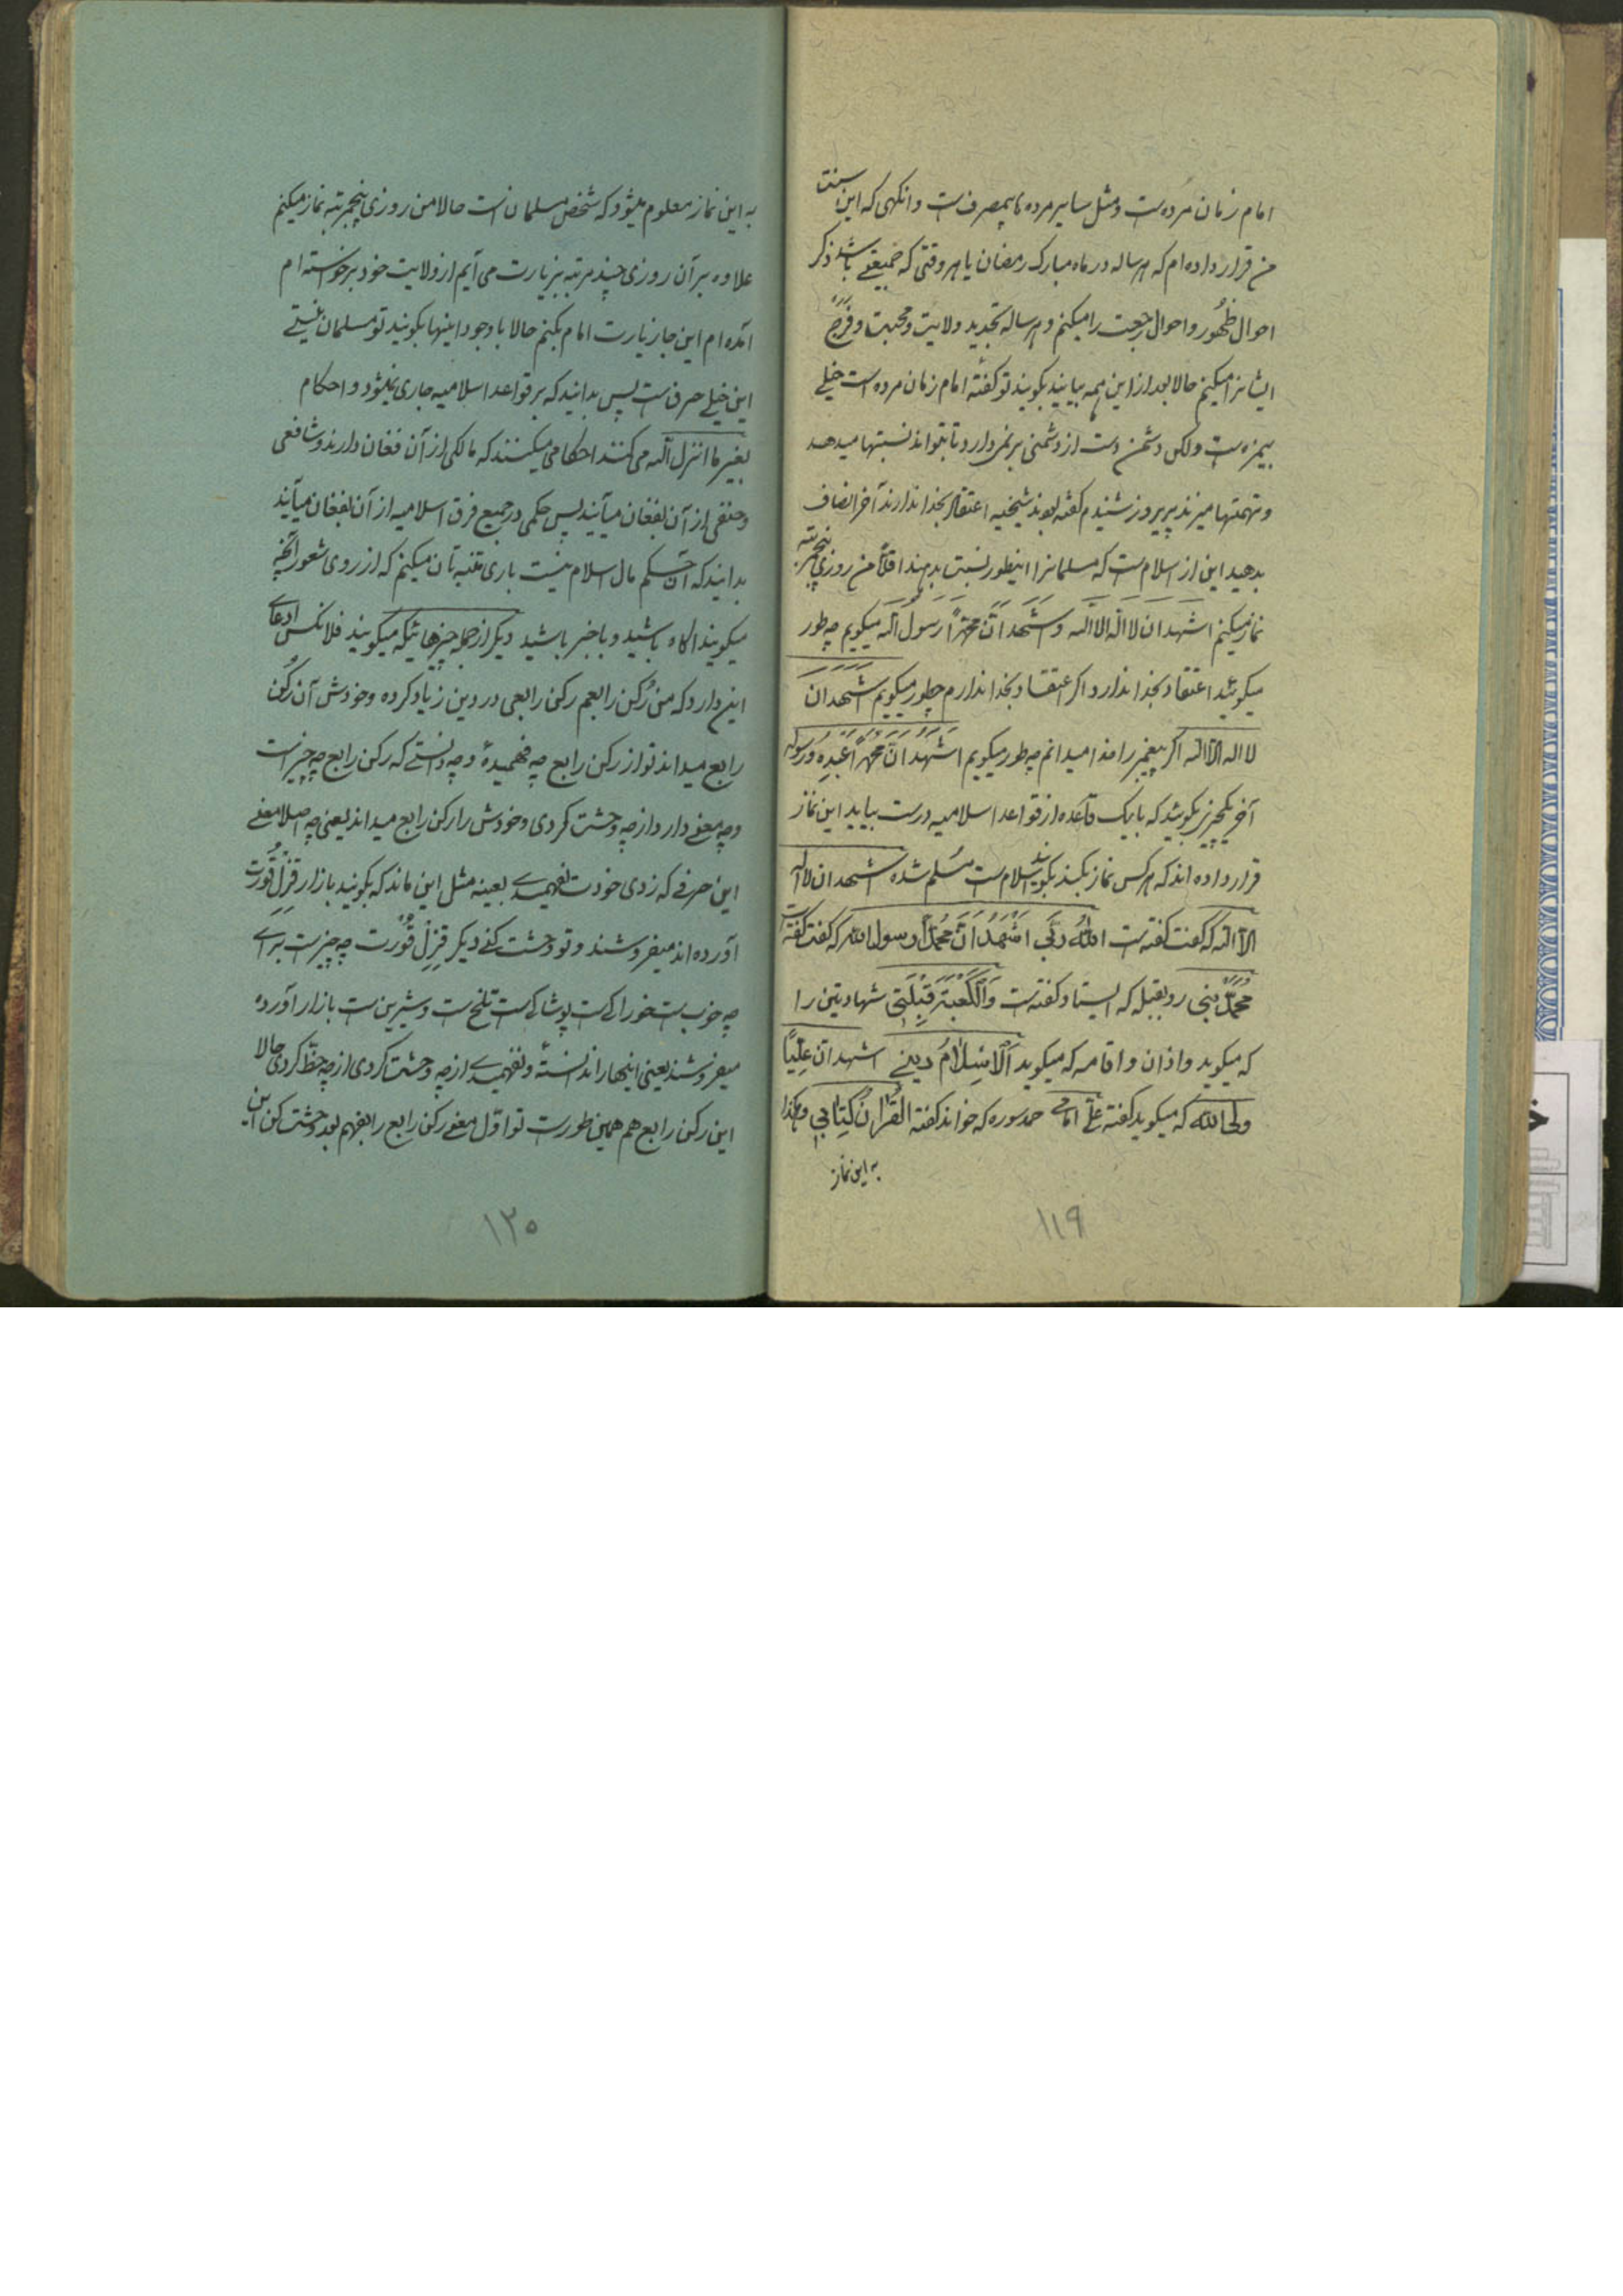 امام زمان مرده‌ست و مثل سایر مرده‌ها بیمصرف‌ست و انگهی که این سنت
من قرار داده‌ام که هر ساله در ماه مبارک رمضان یا هر وقتی که جمعیتی باشد ذکر
احوال ظُهور و احوال رجعت را میکنم و هر ساله تجدید ولایت و محبت و فَرَج
ایشانرا میکنم حالا بعد از این همه بیایند بگویند تو گفته امام زمان مرده است خیلی
بیمزه‌ست ولکن دشمن دست از دشمنی بر نمی‌دارد تا بتواند نسبتها میدهد
و تهمتها میزند پریروز شنیدم گفته بودند شیخیه اعتقاد بخدا ندارند آخر انصاف
بدهید این از اسلام‌ست که مسلمانرا اینطور نسبت بدهند اقلاً من روزی پنجمرتبه
نماز میکنم اشهد ان لا اله الا الله و اشهد ان محمداً رسول الله میگویم چه طور
میگویند اعتقاد بخدا ندارد اگر اعتقاد بخدا ندارم چطور میگویم اشهد ان
لا اله الا الله اگر پیغمبر را خدا میدانم چه طور میگویم اشهد ان محمداً عبده و رسوله
آخر یکچیز بگوئید که با یک قاعده از قواعد اسلامیه درست بیاید این نماز
قرار داده‌اند که هر کس نماز بکند بگویند اسلام‌ست مُسَلم شده اشهد ان لا اله
الا الله که گفت گفته‌ست الله ربی اشهد ان محمداً رسول الله که گفت گفته‌ست
محمدٌ نبی رو بقبله که ایستاد گفته‌ست وَالکَعبَة قِبلَتی شهادتین را
که میگوید و اذان و اقامه که میگوید اَلاِسلامُ دینی اشهد ان علیاً
ولی الله که میگوید گفته علی امامی حمد سوره که خواند گفته القرآن کتابی و هکذا
به این نماز
۱۱۹
به این نماز معلوم میشود که شخص مسلمان است حالا من روزی پنجمرتبه نماز میکنم
علاوه بر آن روزی چند مرتبه بزیارت می‌آیم از ولایت خود برخواسته‌ام
آمده‌ام این جا زیارت امام بکنم حالا با وجود اینها بگویند تو مسلمان نیستی
این خیلی حرف‌ست پس بدانید که بر قواعد اسلامیه جاری نمیشود و احکام
بغیر ما انزل الله می‌کنند احکامی میکنند که مالکی از آن فغان دارند و شافعی
و حنفی از آن بفغان میآیند پس حکمی در جمیع فرق اسلامیه از آن بفغان میآیند
بدانید که آن حکم مال اسلام نیست باری متنبه‌تان میکنم که از روی شعور آنچه
میگویند آگاه باشید و با خبر باشید دیگر از جمله چیزهائیکه میگویند فلانکس ادعای
این دارد که من رُکن رابعم رکن رابعی در دین زیاد کرده و خودش آن رُکن
رابع میداند تو از رکن رابع چه فهمیدهٔ و چه دانستی که رکن رابع چه چیز است
و چه معنی دارد از چه وحشت کردی و خودش را رکن رابع میداند یعنی چه اصلا معنی
این حرفی که زدی خودت نفهمیدی بعینه مثل این ماند که بگویند بازار قِزِل قُورت
آورده‌اند میفروشند و تو وحشت کنی دیگر قِزِل قُورت چه چیزست برای
چه خوب‌ست خوراکی‌ست پوشاکی‌ست تلخ‌ست و شیرین‌ست بازار آورده
میفروشند یعنی اینها را ندانستهٔ و نفهمیدی از چه وحشت کردی از چه حظّ کردی حالا
این رکن رابع هم همین طورست تو اوّل معنی رکن رابع را بفهم بعد وحشت کن این
۱۲۰